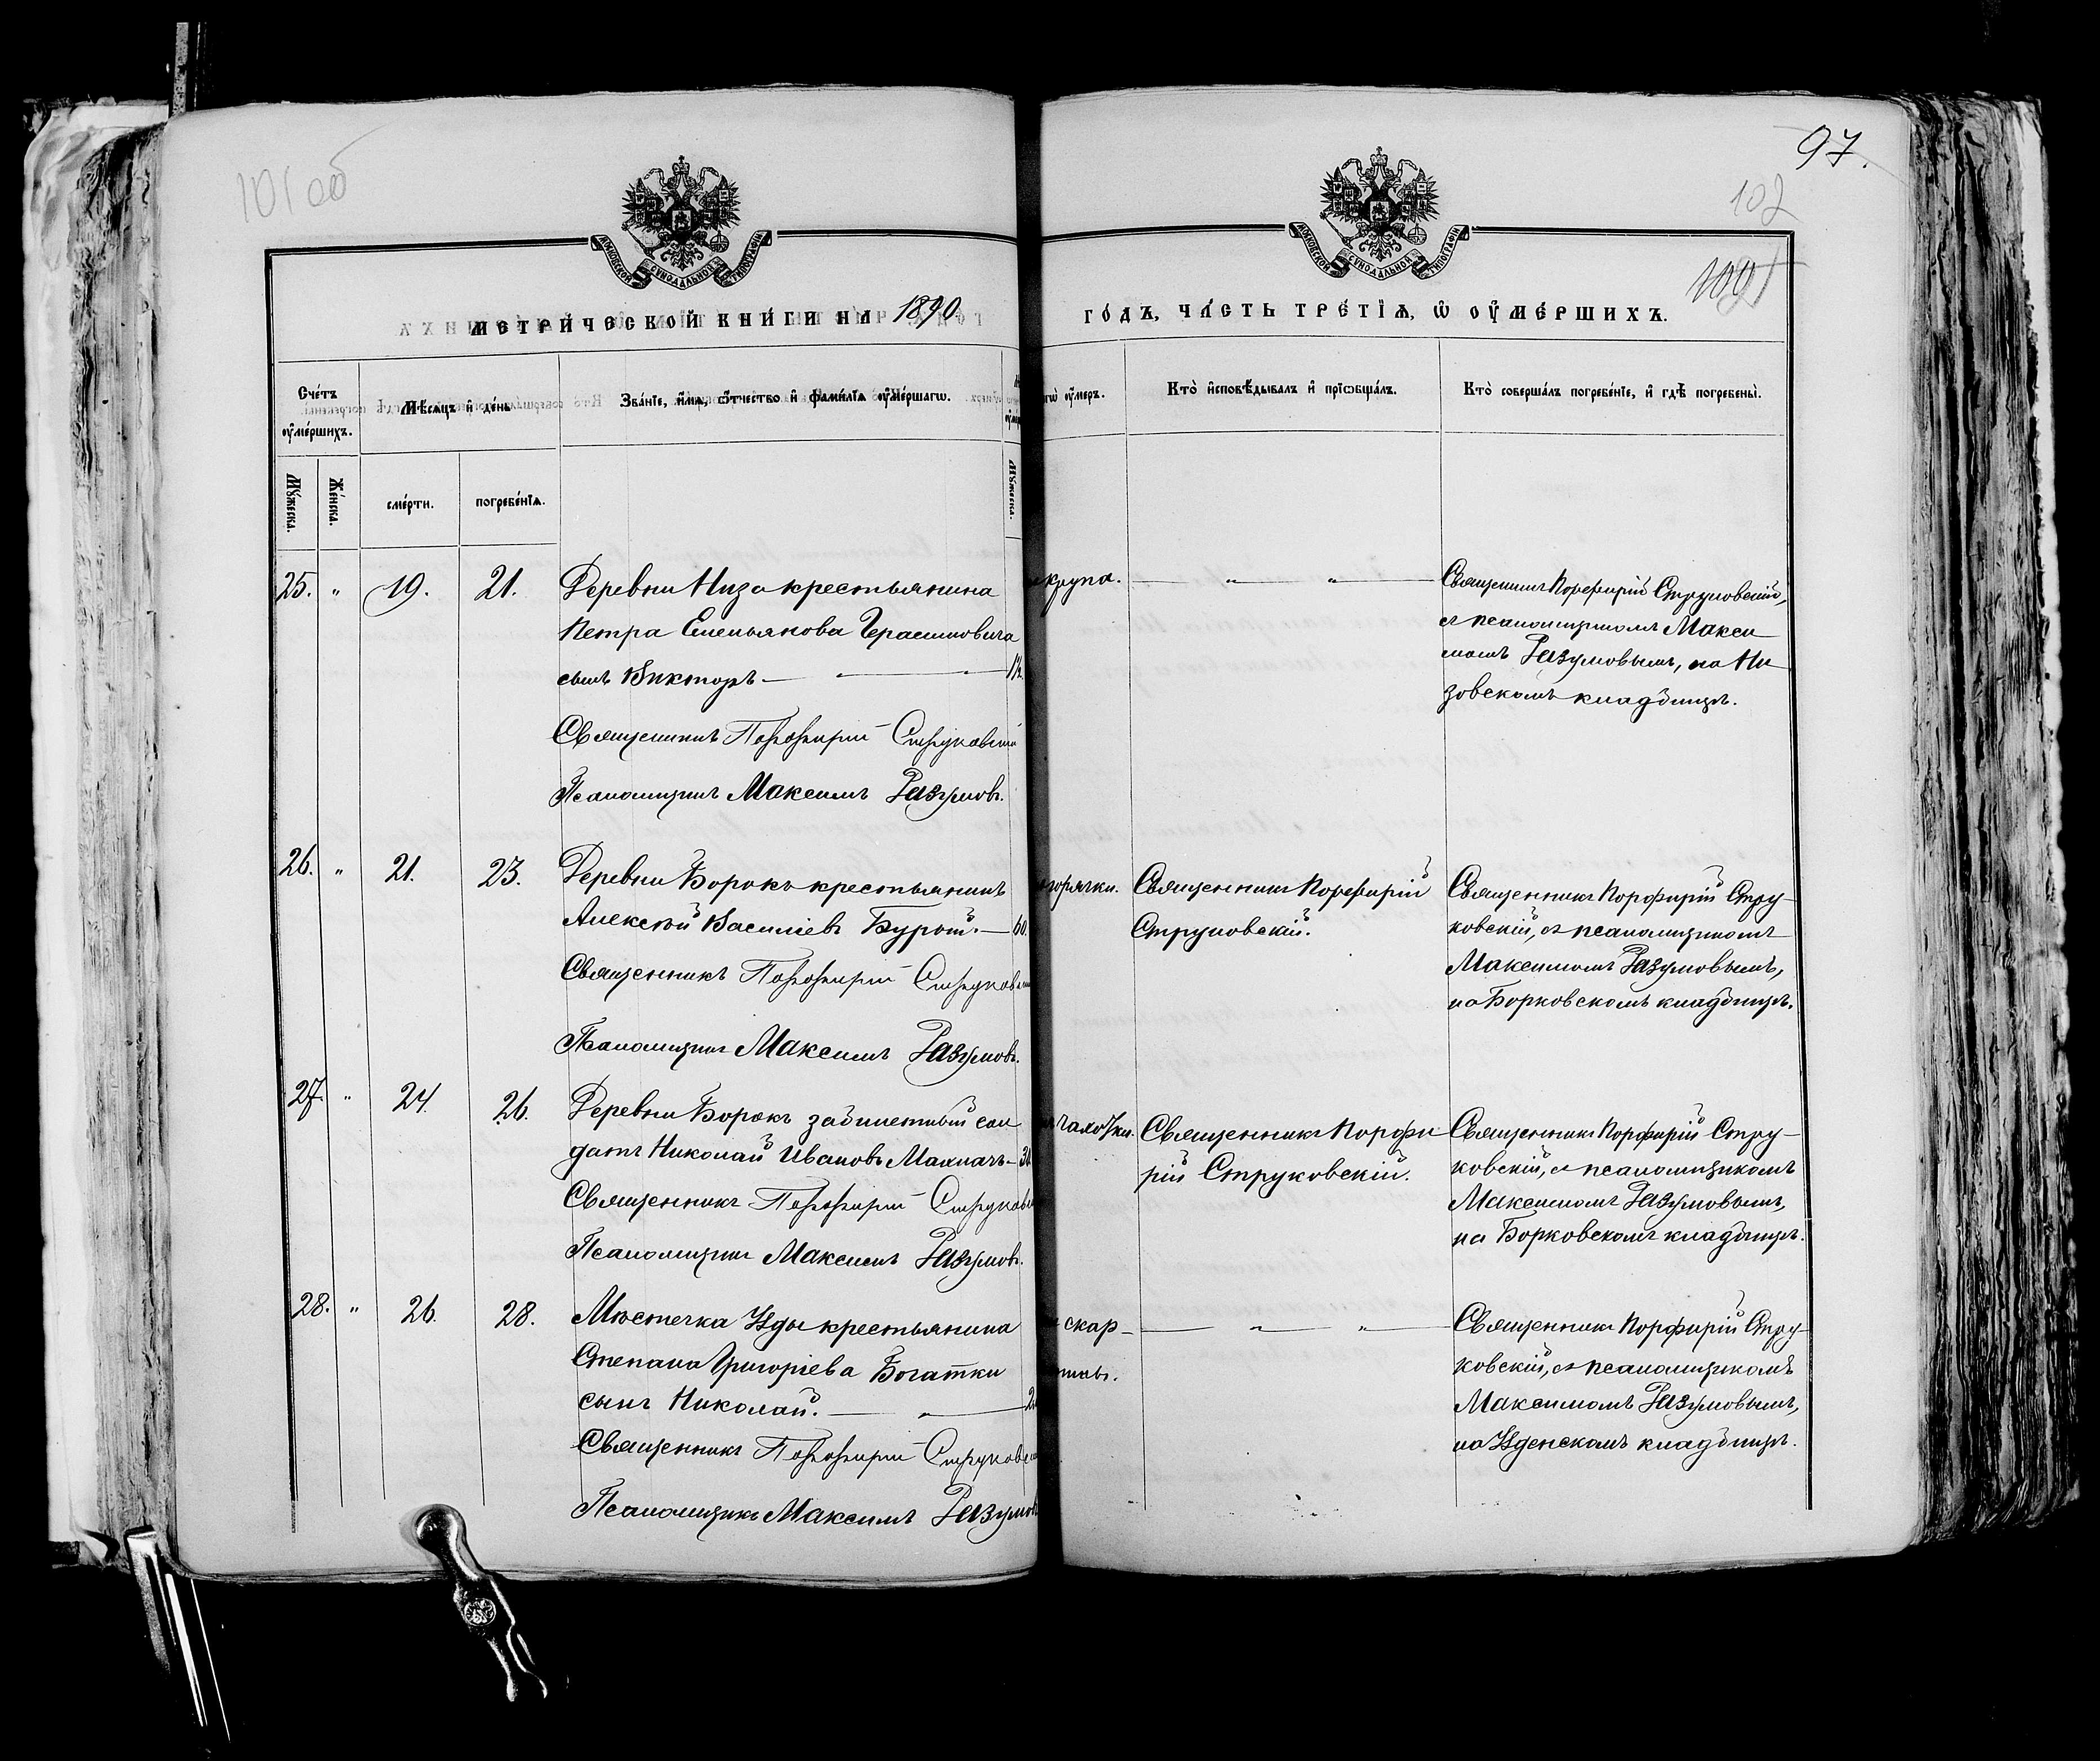 101 об
97.
102
100
МОСКОВСКОЙ СѴНОДАЛЬНОЙ ТИПОГРАФІИ
МОСКОВСКОЙ СѴНОДАЛЬНОЙ ТИПОГРАФІИ
МЕТРИ́ЧЕСКОЙ КНИ́ГИ НА 1890
ГО́ДЪ, ЧА́СТЬ ТРЕ́ТІѦ, Ѿ ОУ҆МЕ́РШИХЪ.
Сче́тъ оу҆ме́ршихъ.
Мѣ́сяцъ и҆ де́нь
Зва́нїе, и҆́мѧ, ѻ҆́тчество и҆ фами́лїѧ оу҆ме́ршагѡ.
оу҆́меръ.
Кто̀ и҆сповѣ́дывалъ и҆ прїѡбща́лъ.
Кто̀ соверша́лъ погребе́нїе, и҆ гдѣ̀ погребены̀.
Мꙋ́жеска.
Же́нска.
сме́рти.
погребе́нїѧ.
Мꙋ́жеска.
25. " 19. 21. Деревни Низа крестьянина
Петра Емельянова Герасимовича
сынъ Викторъ — " — " — 1½
Священникъ Порфирій Струковскій
Псаломщикъ Максимъ Разумовъ.
крупа. — " — " —
Священникъ Порфирій Струковскій,
съ псаломщикомъ Макси
момъ Разумовымъ, на Ни
зовскомъ кладбищѣ.
26. " 21. 23. Деревни Борокъ крестьянинъ
Алексѣй Васильевъ Бурый. — 60.
Священникъ Порфирій Струковскій
Псаломщикъ Максимъ Разумовъ.
горячки. Священникъ Порфирій
Струковскій.
Священникъ Порфирій Стру-
ковскій, съ псаломщикомъ
Максимомъ Разумовымъ,
на Борковскомъ кладбищѣ.
27. " 24. 26. Деревни Борокъ забилетный сол
датъ Николай Ивановъ Махначъ —
Священникъ Порфирій Струковскій
Псаломщикъ Максимъ Разумовъ.
чахотки. Священникъ Порфи
рій Струковскій.
Священникъ Порфирій Стру-
ковскій, съ псаломщикомъ
Максимомъ Разумовымъ,
на Борковскомъ кладбищѣ.
28. " 26. 28. Мѣстечка Узды крестьянина
Степана Григоріева Богатки
сынъ Николай. — " — 2
Священникъ Порфирій Струковскій
Псаломщикъ Максимъ Разумовъ
скар- — " — " —
Священникъ Порфирій Стру-
ковскій, съ псаломщикомъ
Максимомъ Разумовымъ,
на Узденскомъ кладбищѣ.